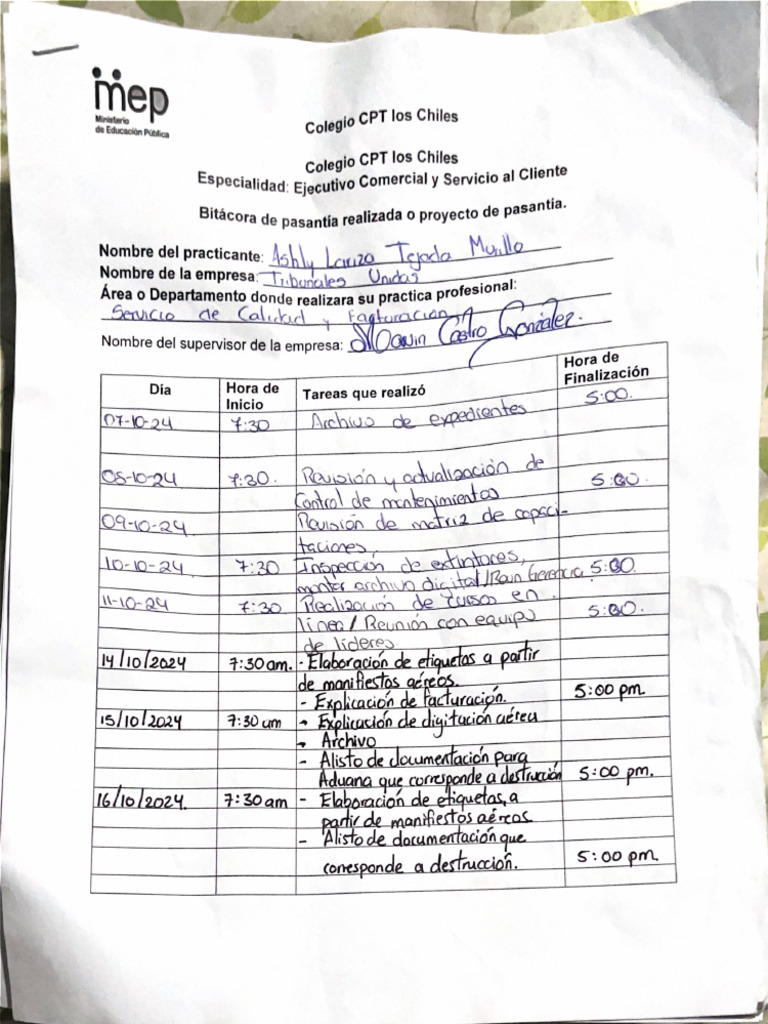 mep
Ministerio
de Educación Pública
Colegio CPT los Chiles
Colegio CPT los Chiles
Especialidad: Ejecutivo Comercial y Servicio al Cliente
Bitácora de pasantía realizada o proyecto de pasantía.
Nombre del practicante: Ashly Tejada Murillo
Nombre de la empresa: Tribunales Unidas
Área o Departamento donde realizara su practica profesional:
Servicio de Calidad y Facturación
Nombre del supervisor de la empresa: Castro González.
Día Hora de Inicio Tareas que realizó Hora de Finalización
07-10-24 7:30 Archivo de expedientes 5:00.
08-10-24 7:30. Revisión y actualización de 5:00.
Control de mantenimientos
09-10-24 Revisión de matriz de capaci-
taciones,
10-10-24 7:30 Inspección de extintores, 5:00
montar archivo digital/ Gerencia
11-10-24 7:30 Realización de cursos en 5:00.
línea/ Reunión con equipo
de líderes
14/10/2024 7:30 am. - Elaboración de etiquetas a partir
de manifiestos aéreos.
- Explicación de facturación. 5:00 pm
15/10/2024 7:30 am - Explicación de digitación aérea
- Archivo
- Alisto de documentación para
Aduana que corresponde a destrucción 5:00 pm.
16/10/2024. 7:30 am - Elaboración de etiquetas, a
partir de manifiestos aéreos
- Alisto de documentación que
corresponde a destrucción. 5:00 pm.